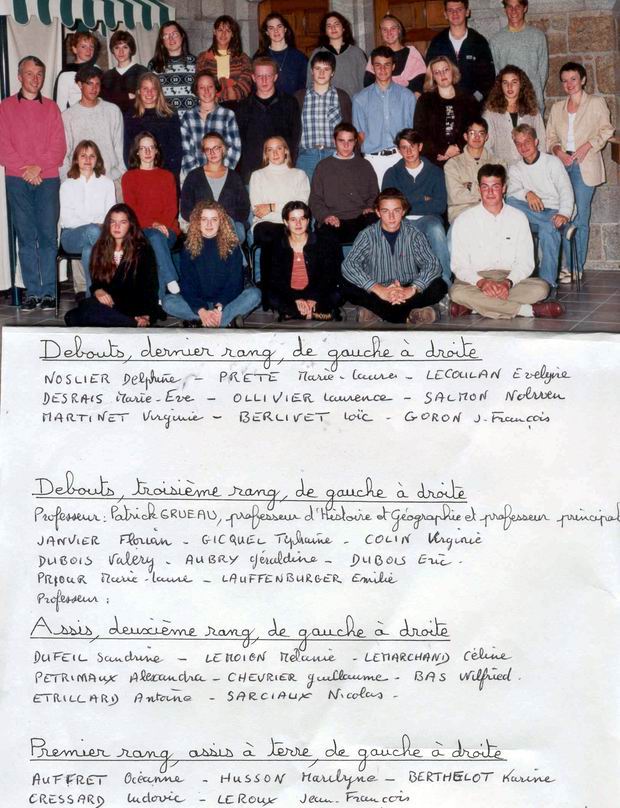 Debouts, dernier rang, de gauche à droite
NOSLIER Delphine - PRETE Marie-Laure - LECOULAN Evelyne
DESRAIS Marie-Eve - OLLIVIER Laurence - SALMON Nolwen
MARTINET Virginie - BERLIVET Loïc - GORON J-François
Debouts, troisième rang, de gauche à droite
Professeur: Patrick GRUEAU, professeur d'Histoire et Géographie et professeur principal
JANVIER Florian - GICQUEL Typhaine - COLIN Virginie
DUBOIS Valéry - AUBRY Géraldine - DUBOIS Eric -
PRIOUR Marie-Laure - LAUFFENBURGER Emilie
Professeur :
Assis, deuxième rang, de gauche à droite
DUFEIL Sandrine - LEMOIGN Mélanie - LEMARCHAND Céline
PETRIMAUX Alexandra - CHEVRIER Guillaume - BAS Wilfried.
ETRILLARD Antoine - SARCIAUX Nicolas -
Premier rang, assis à terre, de gauche à droite
AUFFRET Océanne - HUSSON Marilyne - BERTHELOT Karine
CRESSARD Ludovic - LEROUX Jean-François